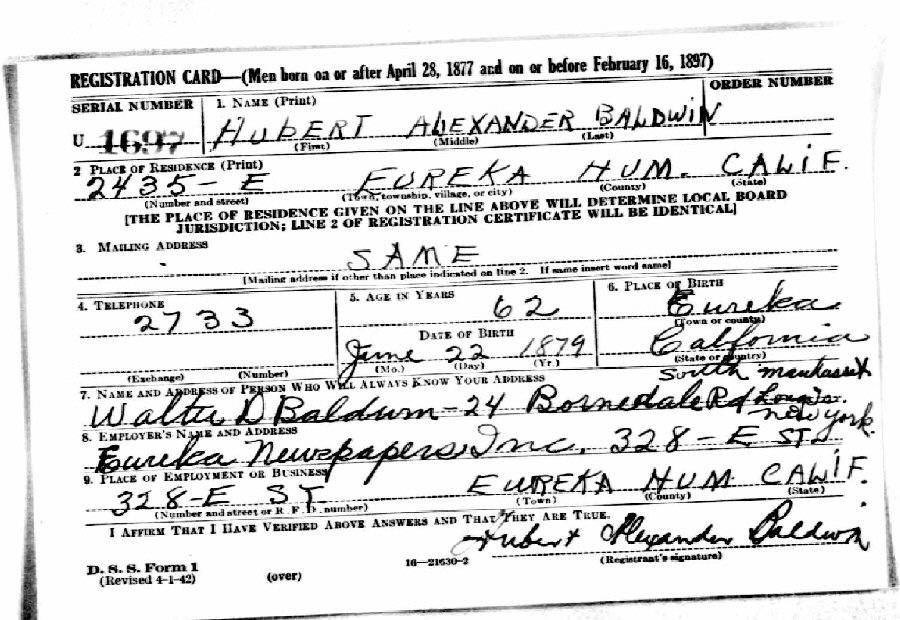 REGISTRATION CARD—(Men born on or after April 28, 1877 and on or before February 16, 1897)
SERIAL NUMBER 1. NAME (Print) ORDER NUMBER
U 1697 HUBERT ALEXANDER BALDWIN
(First) (Middle) (Last)
2 PLACE OF RESIDENCE (Print)
2435 - E EUREKA HUM. CALIF.
(Number and street) (Town, township, village, or city) (County) (State)
[THE PLACE OF RESIDENCE GIVEN ON THE LINE ABOVE WILL DETERMINE LOCAL BOARD
JURISDICTION; LINE 2 OF REGISTRATION CERTIFICATE WILL BE IDENTICAL]
3. MAILING ADDRESS
SAME
[Mailing address if other than place indicated on line 2. If same insert word same]
4. TELEPHONE 5. AGE IN YEARS 6. PLACE OF BIRTH
2733 62 Eureka
DATE OF BIRTH (Town or county)
June 22 1879 California
(Exchange) (Number) (Mo.) (Day) (Yr.) (State or country)
7. NAME AND ADDRESS OF PERSON WHO WILL ALWAYS KNOW YOUR ADDRESS South
Walter D Baldwin - 24 Rd
New York.
8. EMPLOYER'S NAME AND ADDRESS
Eureka Newspapers Inc. 328 - E ST
9. PLACE OF EMPLOYMENT OR BUSINESS
328 - E ST EUREKA HUM CALIF.
(Number and street or R. F. D. number) (Town) (County) (State)
I AFFIRM THAT I HAVE VERIFIED ABOVE ANSWERS AND THAT THEY ARE TRUE.
Hubert Alexander Baldwin
(Registrant's signature)
D. S. S. Form 1
(Revised 4-1-42) (over) 16—21630-2